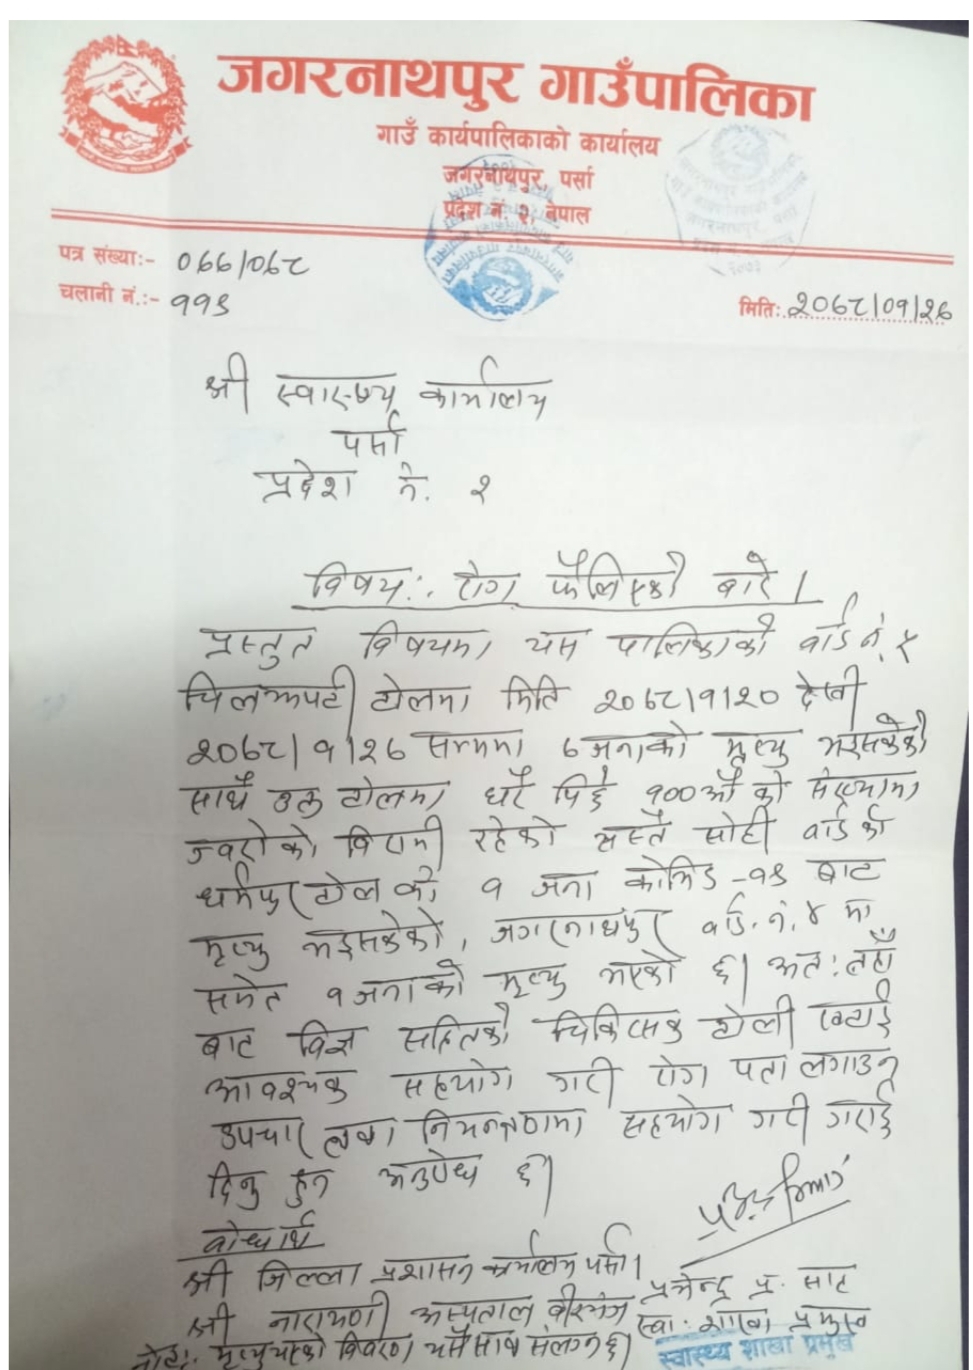 जगरनाथपुर गाउँपालिका
गाउँ कार्यपालिकाको कार्यालय
जगरनाथपुर, पर्सा
प्रदेश नं. २, नेपाल
पत्र संख्याः- ०७७/०७८
चलानी नं.:- ११९
मितिः २०७८/०१/२७
श्री स्वास्थ्य कार्यालय
पर्सा
प्रदेश नं. २
विषय: रोग फैलिएको बारे ।
प्रस्तुत विषयमा यस पालिकाको वार्ड नं. ५
चिलझपटी टोलमा मिति २०७८/१/२० देखी
२०७८/१/२७ सम्ममा ७ जनाको मृत्यु भइसकेको
साथै उक्त टोलमा घरै पिछे १००औं को संख्यामा
ज्वरोको विरामी रहेको यस्तै सोही वार्ड को
धर्मपुर टोल को १ जना कोभिड -१९ बाट
मृत्यु भइसकेको, जगरनाथपुर वार्ड नं. ४ मा
समेत १ जनाको मृत्यु भएको छ। अत: तहाँ
बाट विज्ञ सहितको चिकित्सक टोली खटाई
आवश्यक सहयोग गरी रोग पत्ता लगाउन
उपचार तथा नियन्त्रणमा सहयोग गरी गराई
दिनु हुन अनुरोध छ।
बोधार्थ
श्री जिल्ला प्रशासन कार्यालय पर्सा।
श्री नारायणी अस्पताल वीरगंज
प्र. साह
स्वा. शाखा प्रमुख
नोट: मृत्यु भएको विवरण यसै साथ संलग्न छ।
स्वास्थ्य शाखा प्रमुख